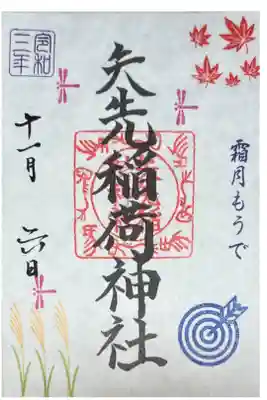 霜月もうで
矢先稲荷神社
令和
十一月 六日